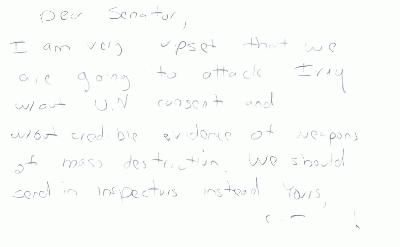 Dear Senator,
I am very upset that we
are going to attack Iraq
w/out U.N consent and
w/out credible evidence of weapons
of mass destruction. We should
send in inspectors instead Yours,